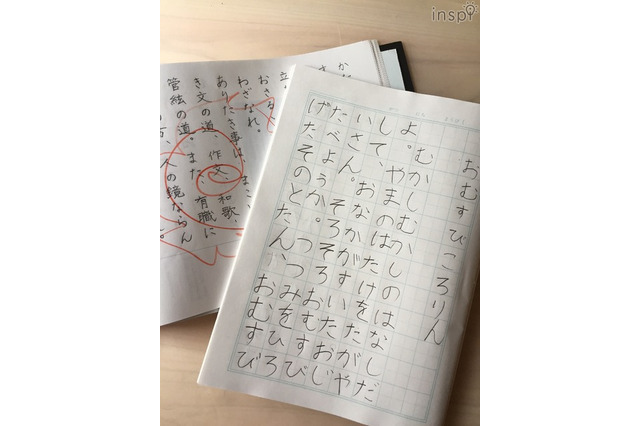 inspi
おむすびころりん
むかしむかしのはなしだ
よ。やまのはたけをたがや
して、おなかがすいたおじ
いさん。そろそろおむすび
たべようか。つつみをひろ
げたそのとたん、おむすび
わざなれ。
ありたき事は、まこ
き文の道、作文、和歌、
管絃の道。また、有職に
方、人の鏡ならん